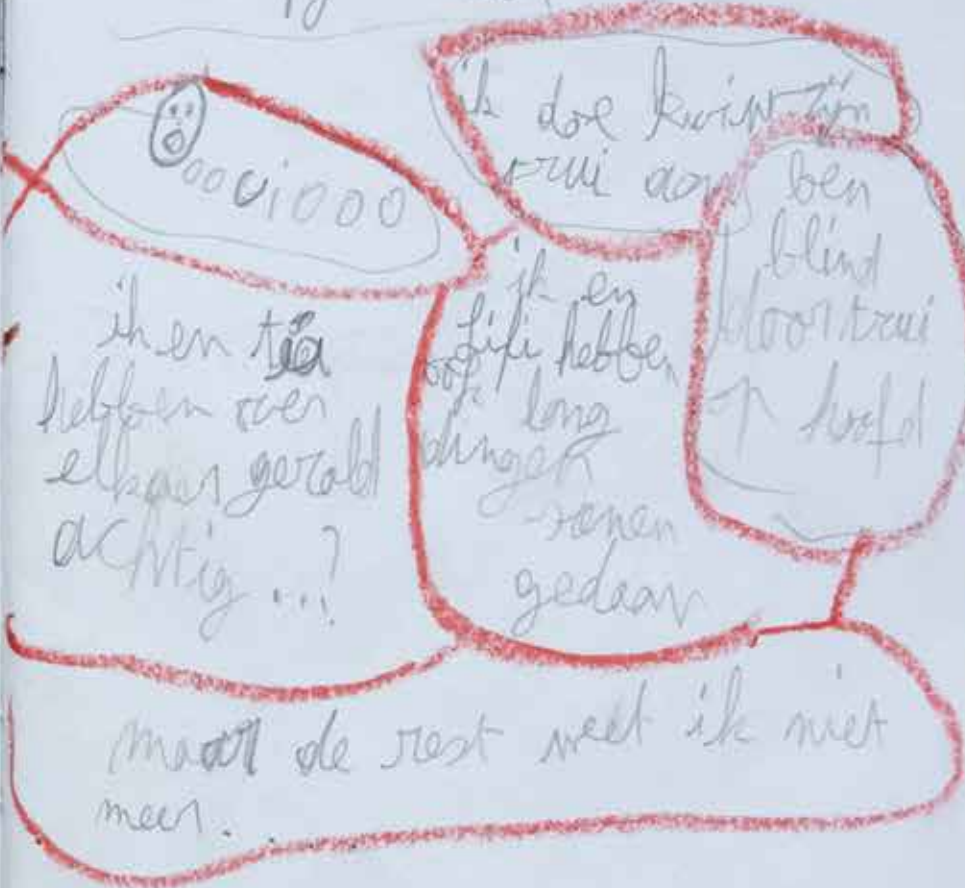 ooouiooo
ik doe kwint zijn
trui aan
ben
blind
door trui
op hoofd
ik en tia
hebben over
elkaar gerold
achtig...?
ik en
fifi hebben
ook long
dingen
samen
gedaan
maar de rest weet ik niet
meer.